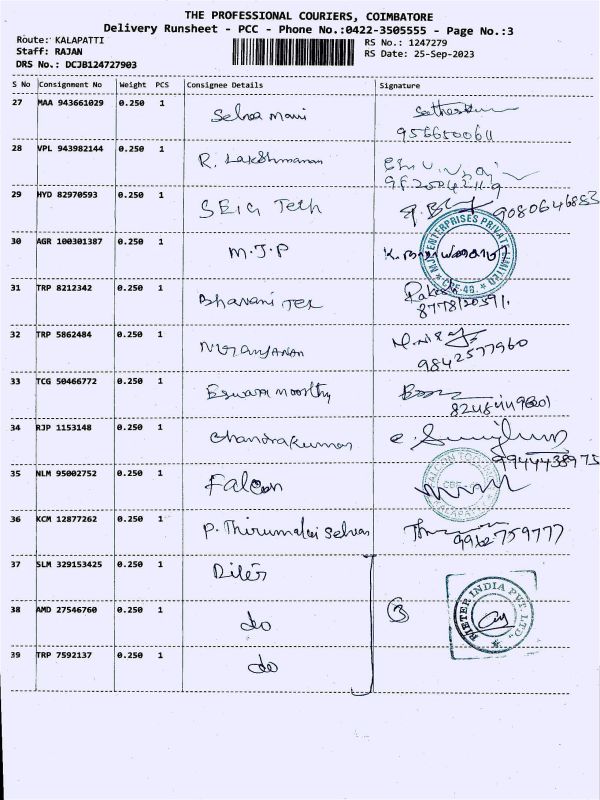 THE PROFESSIONAL COURIERS, COIMBATORE
Delivery Runsheet - PCC - Phone No.:0422-3505555 - Page No.:3
Route: KALAPATTI
RS No.: 1247279
Staff: RAJAN
RS Date: 25-Sep-2023
DRS No.: DCJB124727903
S No Consignment No Weight PCS Consignee Details Signature
27 MAA 943661029 0.250 1 Selva mani
9566500611
28 VPL 943982144 0.250 1 R. Lakshmanan
29 HYD 82970593 0.250 1 SEIG Tech 9080646883
30 AGR 100301387 0.250 1 M.J.P
ENTERPRISES PRIVATE LIMITED
31 TRP 8212342 0.250 1 Bhavani Tex
32 TRP 5862484 0.250 1 Niranjanan
9842577960
33 TCG 50466772 0.250 1 Eswara moorthy
34 RJP 1153148 0.250 1 Chandrakumar
9944438975
35 NLM 95002752 0.250 1 Falcon
KALAPATTI
36 KCM 12877262 0.250 1 P. Thirumalai Selvan
9962759777
37 SLM 329153425 0.250 1
RIETER INDIA PVT. LTD.
38 AMD 27546760 0.250 1 do 3
39 TRP 7592137 0.250 1 do